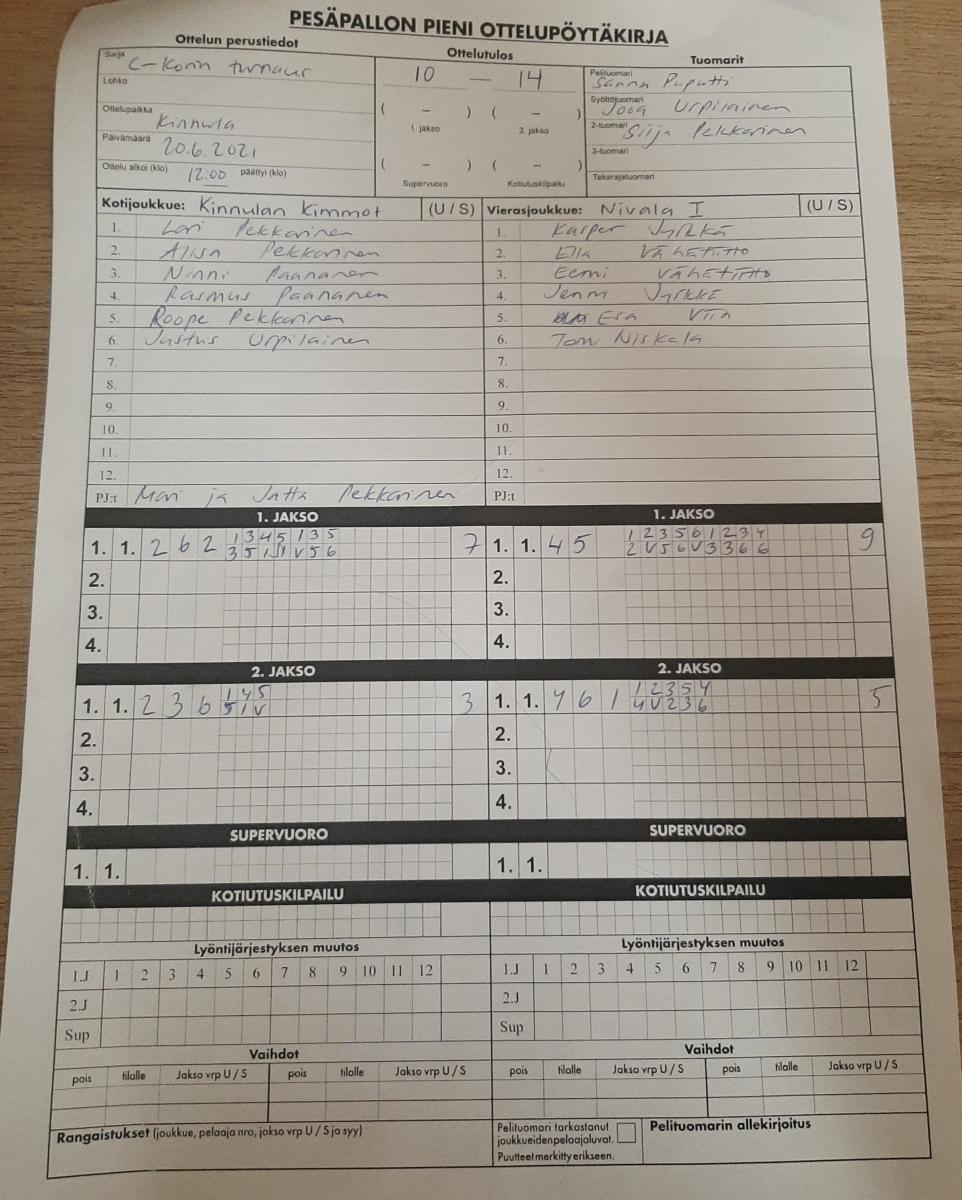 PESÄPALLON PIENI OTTELUPÖYTÄKIRJA
Ottelun perustiedot
Ottelutulos
Tuomarit
Sarja C-Korin turnaus
Lohko
Ottelupaikka Kinnula
Päivämäärä 20.6.2021
Ottelu alkoi (klo) 12:00 päättyi (klo)
10 — 14
( – ) ( – )
1. jakso 2. jakso
( – ) ( – )
Supervuoro Kotiutuskilpailu
Pelituomari Sanna
Syöttötuomari Joog Urpilainen
2-tuomari Silja Pekkarinen
3-tuomari
Takarajatuomari
Kotijoukkue: Kinnulan Kimmot (U / S)
1. Lari Pekkarinen
2. Alisa Pekkarinen
3. Ninni Paananen
4. Rasmus Paananen
5. Roope Pekkarinen
6. Justus Urpilainen
7.
8.
9.
10.
11.
12.
PJ:t Mari ja Jatta Pekkarinen
Vierasjoukkue: Nivala I (U / S)
1. Kasper Jyrkkä
2. Ella Vähetiitto
3. Eemi Vähetiitto
4. Jenni Jyrkkä
5. Esa
6. Tomi Niskala
7.
8.
9.
10.
11.
12.
PJ:t
1. JAKSO
1. 1. 2 6 2 1 3 4 5 1 3 5
3 5 1 1 V 5 6
7
2.
3.
4.
1. JAKSO
1. 1. 4 5 1 2 3 5 6 1 2 3 4
2 V 5 6 V 3 3 6 6
9
2.
3.
4.
2. JAKSO
1. 1. 2 3 6 1 4 5
5 1 V
3
2.
3.
4.
2. JAKSO
1. 1. 4 6 1 1 2 3 5 4
4 V 2 3 6
5
2.
3.
4.
SUPERVUORO
1. 1.
SUPERVUORO
1. 1.
KOTIUTUSKILPAILU
KOTIUTUSKILPAILU
Lyöntijärjestyksen muutos
1.J 1 2 3 4 5 6 7 8 9 10 11 12
2.J
Sup
Lyöntijärjestyksen muutos
1.J 1 2 3 4 5 6 7 8 9 10 11 12
2.J
Sup
Vaihdot
pois tilalle Jakso vrp U / S pois tilalle Jakso vrp U / S
Vaihdot
pois tilalle Jakso vrp U / S pois tilalle Jakso vrp U / S
Rangaistukset (joukkue, pelaaja nro, jakso vrp U / S ja syy)
Pelituomari tarkastanut
joukkueiden pelaajaluvat.
Puutteet merkitty erikseen.
Pelituomarin allekirjoitus